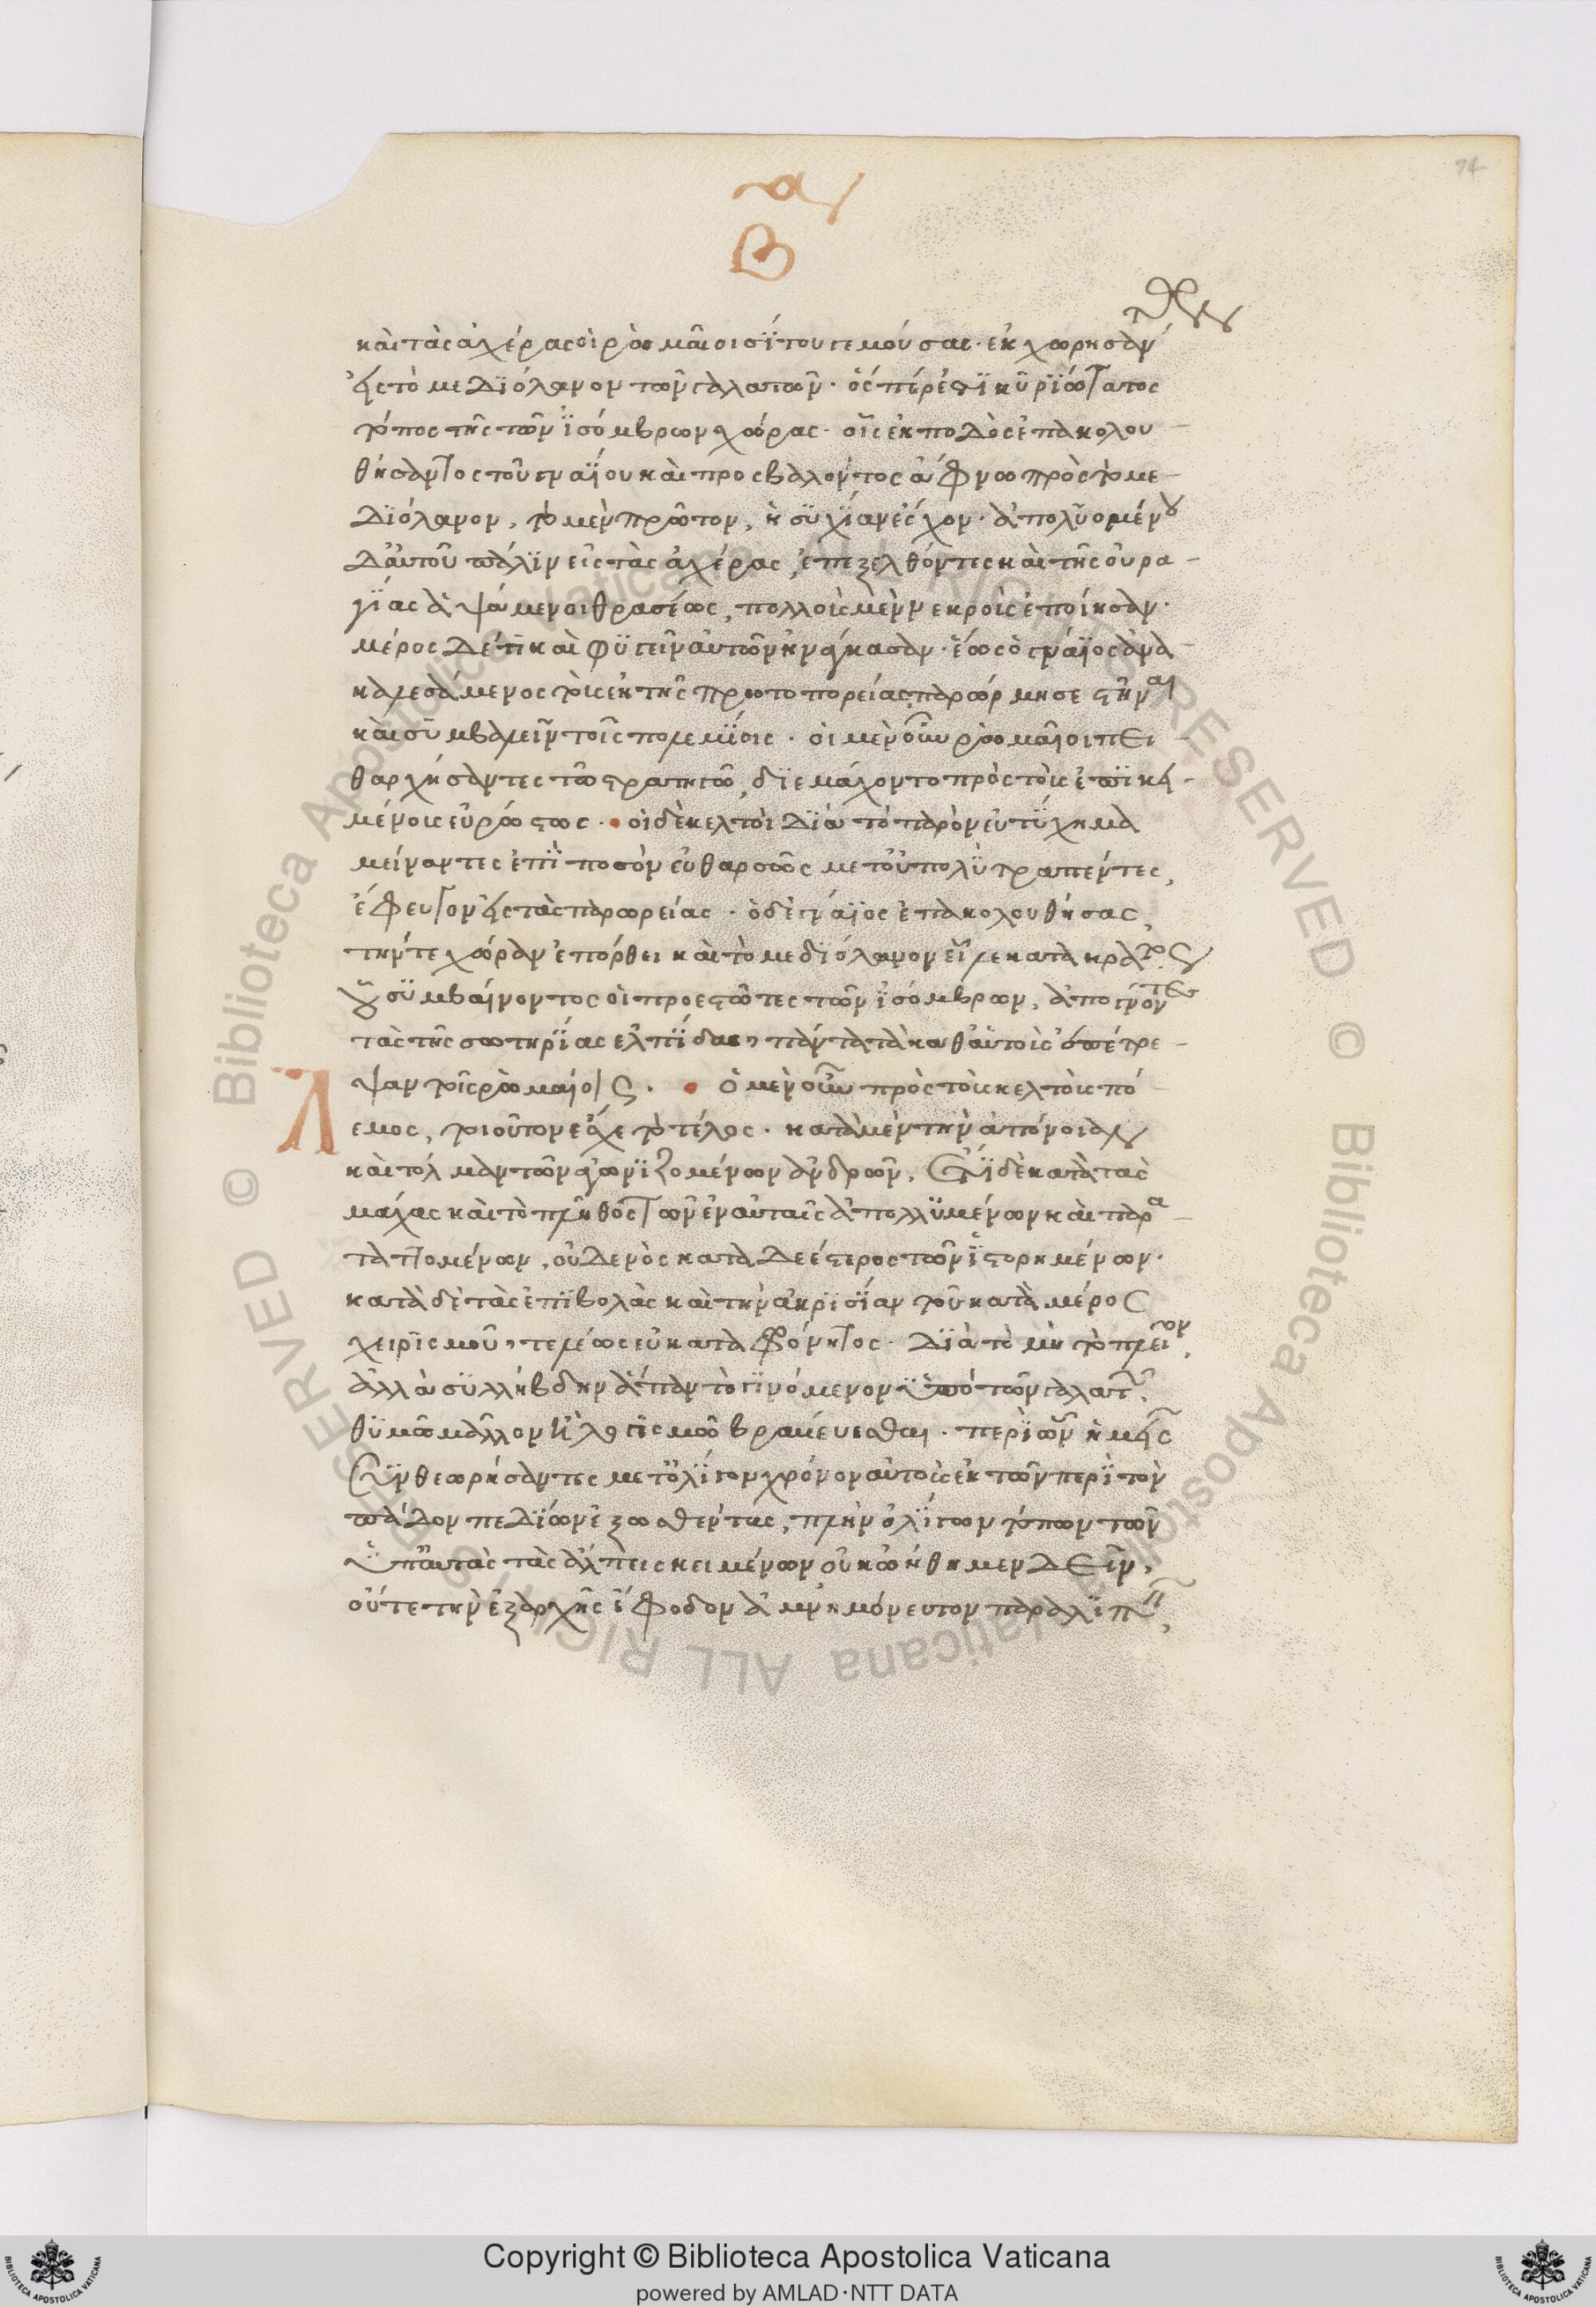 74
β
καὶ τὰς ἀχέρας οἱ ῥωμαῖοι σίτου γεμούσας· ἐκχωρησάν
εἰς τὸ μεδιόλανον τῶν γαλατῶν· ὅσπέρ ἐστι κυριώτατος
τόπος τῆς τῶν ἰσόμβρων χώρας· οἷς ἐκ ποδὸς ἐπακολου
θήσαντος τοῦ γναΐου καὶ προσβαλόντος ἄφνω πρὸς τὸ με
διόλανον, τὸ μὲν πρῶτον, ἡσυχίαν ἔσχον· ἀπολυομένου
δ' αὐτοῦ πάλιν εἰς τὰς ἀχέρας, ἐπεξελθόντες καὶ τῆς οὐρα
γίας ἁψάμενοι θρασέως, πολλοὺς μὲν νεκροὺς ἐποίησαν·
μέρος δέ τι καὶ φυγεῖν αὐτῶν ἠνάγκασαν· ἕως ὁ γνάϊος ἀνα
καλεσάμενος τοὺς ἐκ τῆς πρωτοπορείας παρώρμησε στῆναι
καὶ συμβαλεῖν τοῖς πολεμίοις· οἱ μὲν οὖν ῥωμαῖοι πει
θαρχήσαντες τῶ στρατηγῶ, διεμάχοντο πρὸς τοὺς ἐπικει
μένους εὐρώστως· οἱ δὲ κελτοὶ διὰ τὸ παρὸν εὐτύχημα
μείναντες ἐπὶ ποσὸν εὐθαρσῶς μετ' οὐ πολὺ τραπέντες,
ἔφευγον εἰς τὰς παρωρείας· ὁ δὲ γνάϊος ἐπακολουθήσας,
τήν τε χώραν ἐπόρθει καὶ τὸ μεδιόλανον εἷλε κατὰ κράτος
οὗ συμβαίνοντος οἱ προεστῶτες τῶν ἰσόμβρων, ἀπογνόντες
τὰς τῆς σωτηρίας ἐλπίδας, πάντα τὰ καθ' αὑτοὺς ἐπέτρε
ψαν τοῖς ῥωμαίοις. ὁ μὲν οὖν πρὸς τοὺς κελτοὺς πό
λεμος, τοιοῦτον ἔσχε τὸ τέλος· κατὰ μὲν τὴν ἀπόνοιαν
καὶ τόλμαν τῶν ἀγωνιζομένων ἀνδρῶν, ἔτι δὲ κατὰ τὰς
μάχας καὶ τὸ πλῆθος τῶν ἐν αὐταῖς ἀπολλυμένων καὶ παρα
ταττομένων, οὐδενὸς καταδεέστερος τῶν ἱστορημένων·
κατὰ δὲ τὰς ἐπιβολὰς καὶ τὴν ἀκρισίαν τοῦ κατὰ μέρος
χειρισμοῦ, τελέως εὐκαταφρόνητος· διὰ τὸ μὴ τὸ πλεῖον,
ἀλλὰ συλλήβδην ἅπαν τὸ γινόμενον ὑπὸ τῶν γαλατῶν,
θυμῶ μᾶλλον ἢ λογισμῶ βραβεύεσθαι· περὶ ὧν ἡμεῖς
συνθεωρήσαντες μετ' ὀλίγον χρόνον αὐτοὺς ἐκ τῶν περὶ τὸν
πάδον πεδίων ἐξωσθέντας, πλὴν ὀλίγων τόπων τῶν
ὑπ' αὐτὰς τὰς ἄλπεις κειμένων οὐκ ὠήθημεν δεῖν,
οὔτε τὴν ἐξ ἀρχῆς ἔφοδον ἀμνημόνευτον παραλιπεῖν,
© Biblioteca Apostolica Vaticana ALL RIGHTS RESERVED © Biblioteca Apostolica Vaticana ALL RIGHTS RESERVED
Copyright © Biblioteca Apostolica Vaticana
powered by AMLAD·NTT DATA